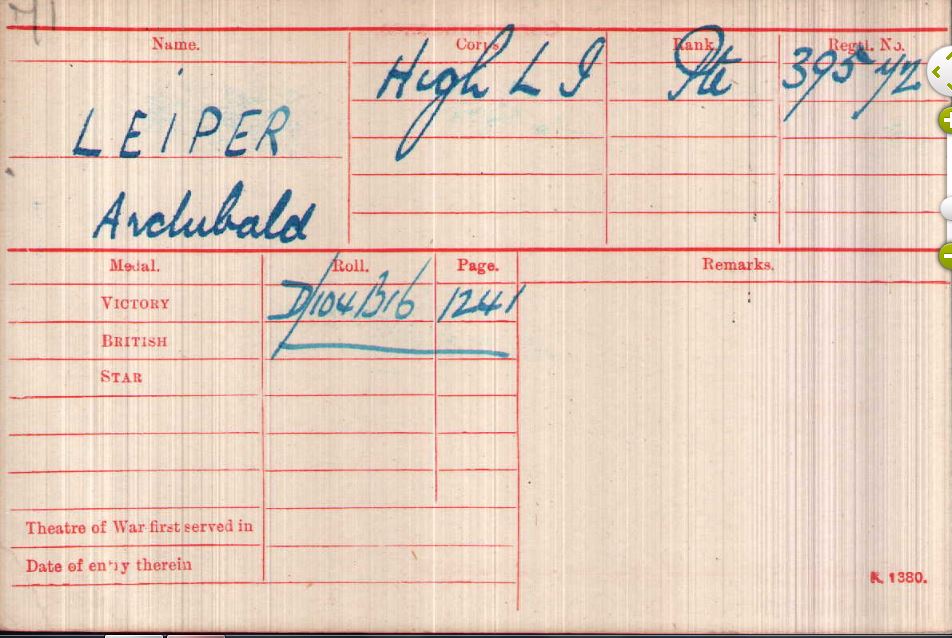 Name. Corps. Rank. Regtl. No.
High L I Pte 39542
LEIPER
Archibald
Medal. Roll. Page. Remarks.
VICTORY D/104B16 1241
BRITISH
STAR
Theatre of War first served in
Date of entry therein
K. 1380.